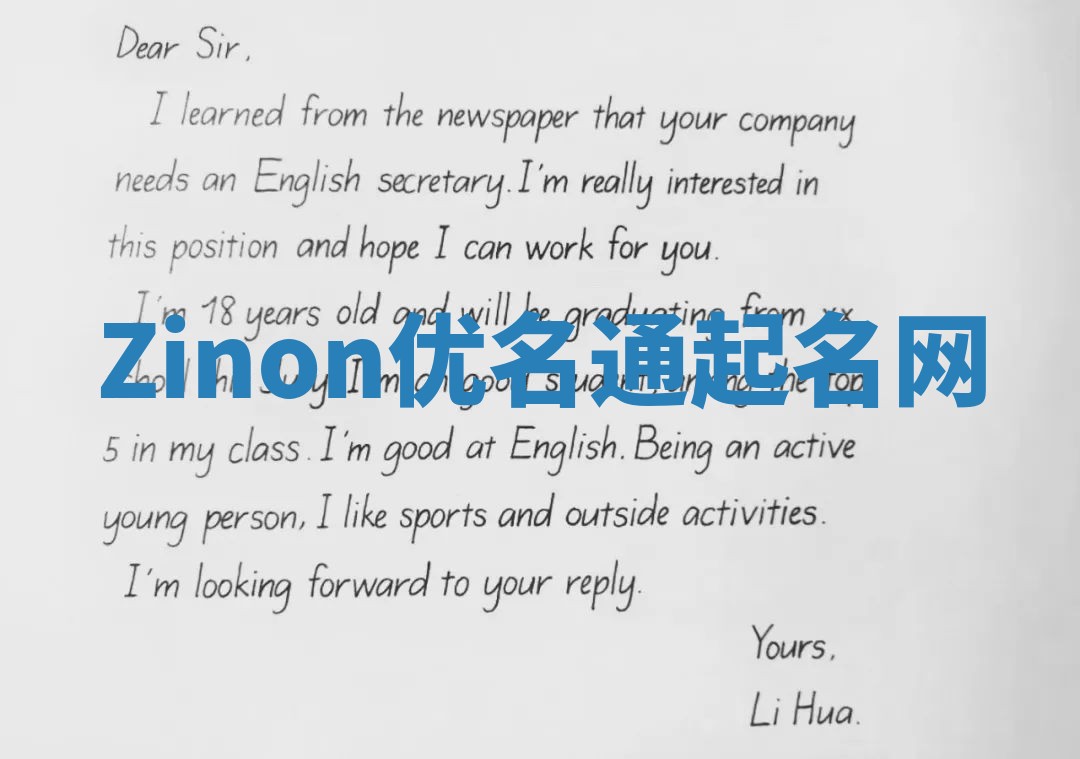 Dear Sir,
I learned from the newspaper that your company
needs an English secretary. I'm really interested in
this position and hope I can work for you.
I'm 18 years old and will be graduating from xx
Zinon优名通起名网
I'm good student, the top
5 in my class. I'm good at English. Being an active
young person, I like sports and outside activities.
I'm looking forward to your reply.
Yours,
Li Hua.